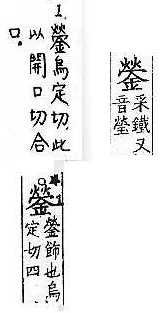 1. 鎣烏定切,此
以開口切合
口。
鎣
采鐵又
音瑩
鎣
*1
鎣飾也烏
定切四